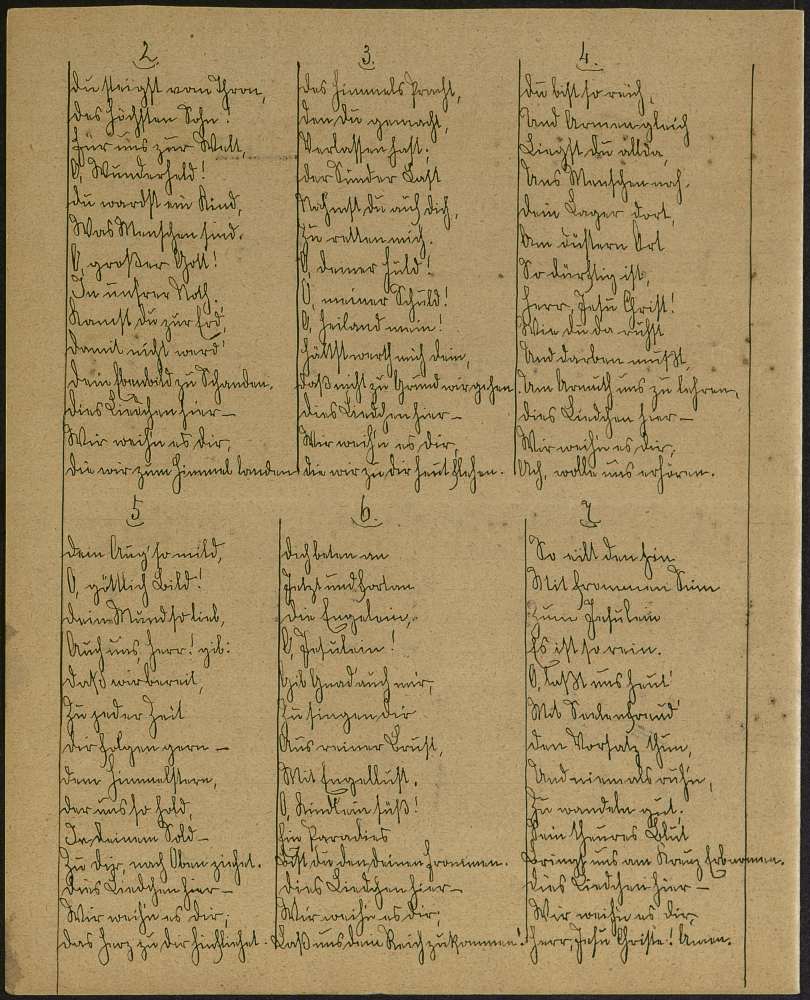 2.
Du steigst vom Thron,
Des Höchsten Sohn!
Für uns zur Welt,
O, Wunderheld!
Du wardst ein Kind,
Was Menschen sind.
O, großer Gott!
In unsrer Noth
Kamst Du zur Erd',
Damit nicht werd'
Dein Ebenbild zu Schanden.
Dies Liedchen hier –
Wir weih'n es Dir,
Die wir zum Himmel landen
3.
Des Himmels Pracht,
Den Du gemacht,
Verlassen hast;
Der Sünder Last
Nahmst Du auf Dich,
Zu retten mich.
O, Deiner Huld!
O, meiner Schuld!
O, Heiland mein!
Hältst werth mich Dein,
Daß nicht zu Grund wir gehen.
Dies Liedchen hier –
Wir weih'n es Dir,
Die wir zu Dir heut flehen.
4.
Du bist so reich,
Und Armen gleich
Liegst Du allda,
Uns Menschen nah.
Dein Lager dort,
Am düstern Ort
So dürftig ist,
Herr, Jesu Christ!
Wie Du da ruhst
Und darben mußt,
Um Armuth uns zu lehren,
Dies Liedchen hier –
Wir weih'n es Dir,
Ach, wolle uns erhören.
5
Dein Aug' so mild,
O, göttlich Bild!
Dein Mund so lieb,
Auch uns, Herr! gib:
Daß wir bereit,
Zu jeder Zeit
Dir folgen gern –
Dem Himmelstern,
Der uns so hold,
In Deinem Sold –
Zu Dir, nach Oben ziehet.
Dies Liedchen hier –
Wir weih'n es Dir;
Das Herz zu Dir hinfliehet.
6.
Dich beten an
Jetzt und fortan
Die Engelein,
O, Jesulein!
Gib Gnad' auch mir,
Zu singen Dir
Aus reiner Brust,
Mit Engellust,
O, Kindlein süß!
Ein Paradies
Bist Du den Deinen frommen.
Dies Liedchen hier –
Wir weih'n es Dir;
Laß uns Dein Reich zukommen!
7
So eilt denn hin
Mit frommen Sinn
Zum Jesulein
Es ist so rein.
O, laßt uns heut'
Mit Seelenfreud'
Den Vorsatz thun,
Und niemals ruh'n,
Zu wandeln gut.
Sein theures Blut
Bringt uns am Kreuz Erbarmen.
Dies Liedchen hier –
Wir weih'n es Dir,
Herr, Jesu Christe! Amen.